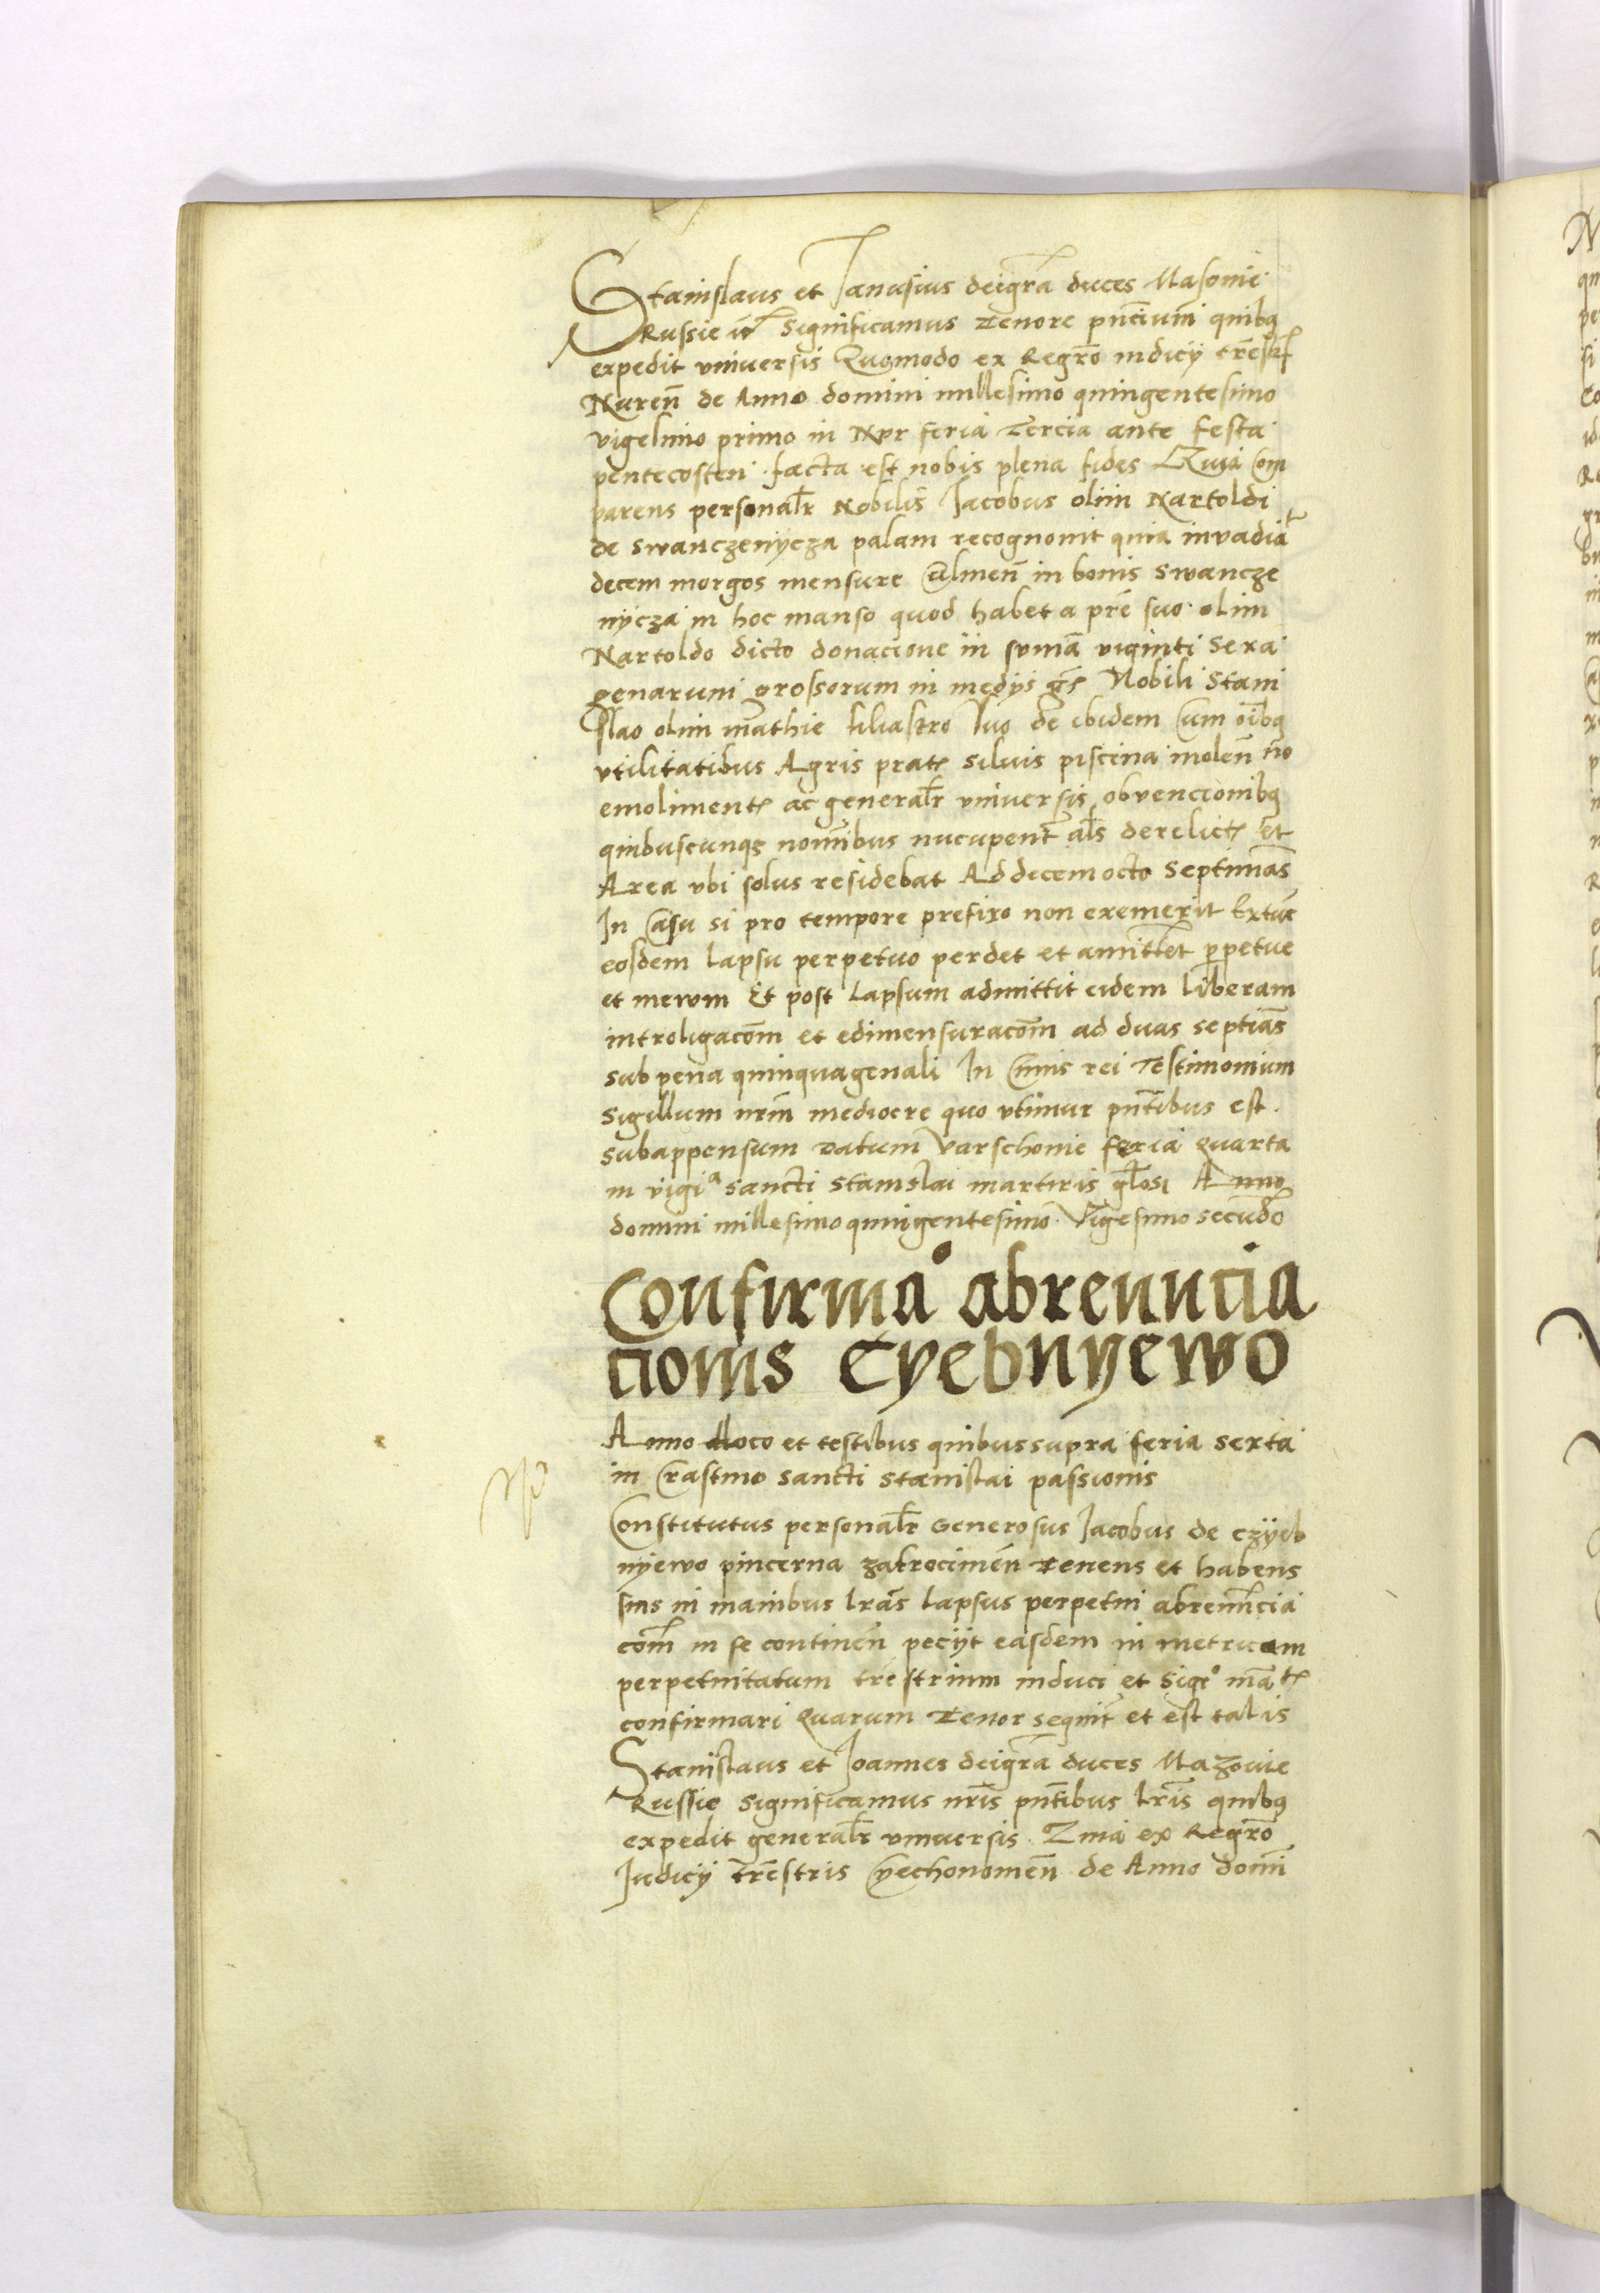 Stanislaus et Janusius deigra͂ duces Masouie
Russie ꝛc̃ Significamus Tenore pñtium quibꝫ
expedit vniuersis Quomodo ex Regr̃o iudicij tr̃estr̃
Nureñ de Anno domini millesimo quingentesimo
vigesimo primo in Nvr feria Tercia ante festa
pentecosten facta est nobis plena fides Quia Com
parens personalr̃ Nobilis Jacobus olim Nartoldi
de Swanczenycza palam recognouit quia inuadiat
decem morgos mensure Culmeñ in bonis Swancze
nycza in hoc manso quod habet a pr̃e suo olim
Nartoldo dicto donacione in sum̃a viginti Sexa
genarum grossorum in medijs gr̃ Nobili Stani
slao olim mathie filiastro suo de ibidem Cum oĩbꝫ
vtilitatibus Agris prat̃ siluis piscina moleñ
emoliment̃ ac generalr̃ vniuersis obuencionibꝫ
quibuscunqꝫ nominibus nucupent̃ al̃s derelict̃ Et
Area vbi solus residebat Ad decem octo Septimãs
In Casu si pro tempore prefixo non exemerit Extũc
eosdem lapsu perpetuo perdet et amittet ꝑpetue
et mewm Et post lapsum admittit eidem liberam
introligacõm et edimensuracõm ad duas septiãs
sub pena quinquagenali In Cuius rei Testimonium
Sigillum nr̃m mediocre quo vtimur pñtibus est
subappensum Datum Varschouie feria Quarta
in vigiᵃ sancti Stanislai martiris gl̃osi Anno
domini millesimo quingentesimo Vigesimo secũdo
Confirmaᵒ abrenuncia
cionis Cyebnyewo
Anno lloco et testibus quibussupra feria sexta
in Crastino sancti Stanislai passionis
Constitutus personalr̃ Generosus Jacobus de Czyeb
nyewo pincerna zakrocimeñ Tenens et habens
suis in manibus lr̃as lapsus perpetui abrenũcia
cõm in se contineñ peciit easdem in metricam
perpetuitatum tr̃estrium induci et Sigᵒ
confirmari Quarum Tenor sequit̃ et est talis
Stanislaus et Joannes deigra͂ duces Mazouie
Russie Significamus nr̃is pñtibus lr̃is quibꝫ
expedit generalr̃ vniuersis Quia ex Regr̃o
Judicij tr̃estris Cyechonomeñ de Anno domi͂